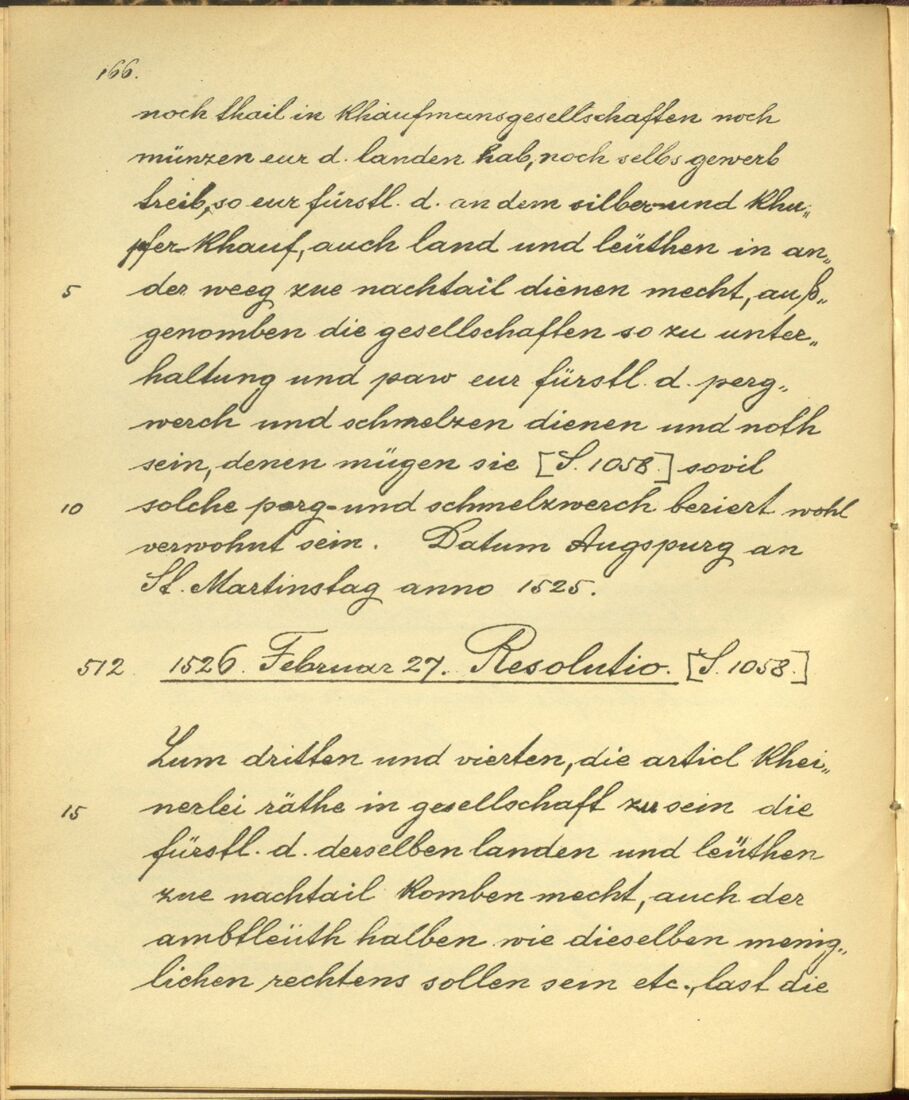 166.
noch thail in Khaufmansgesellschaften noch
münzen eur d. landen hab, noch selbs gewerb
treib, so eur fürstl. d. an dem silber und Khu„
pfer Khauf, auch land und leüthen in an„
5 der weeg zue nachtail dienen mecht, auß„
genomben die gesellschaften so zu unter„
haltung und paw eur fürstl. d. perg„
werch und schmelzen dienen und noth
sein, denen mügen sie [S. 1058.] sovil
10 solche perg- und schmelzwerch beriert wohl
verwohnt sein. Datum Augspurg an
St. Martinstag anno 1525.
512 1526. Februar 27. Resolutio. [S. 1058.]
Zum dritten und vierten, die articl Khei„
15 nerlei räthe in gesellschaft zu sein die
fürstl. d. derselben landen und leüthen
zue nachtail komben mecht, auch der
ambtleüth halben wie dieselben menig„
lichen rechtens sollen sein etc., last die